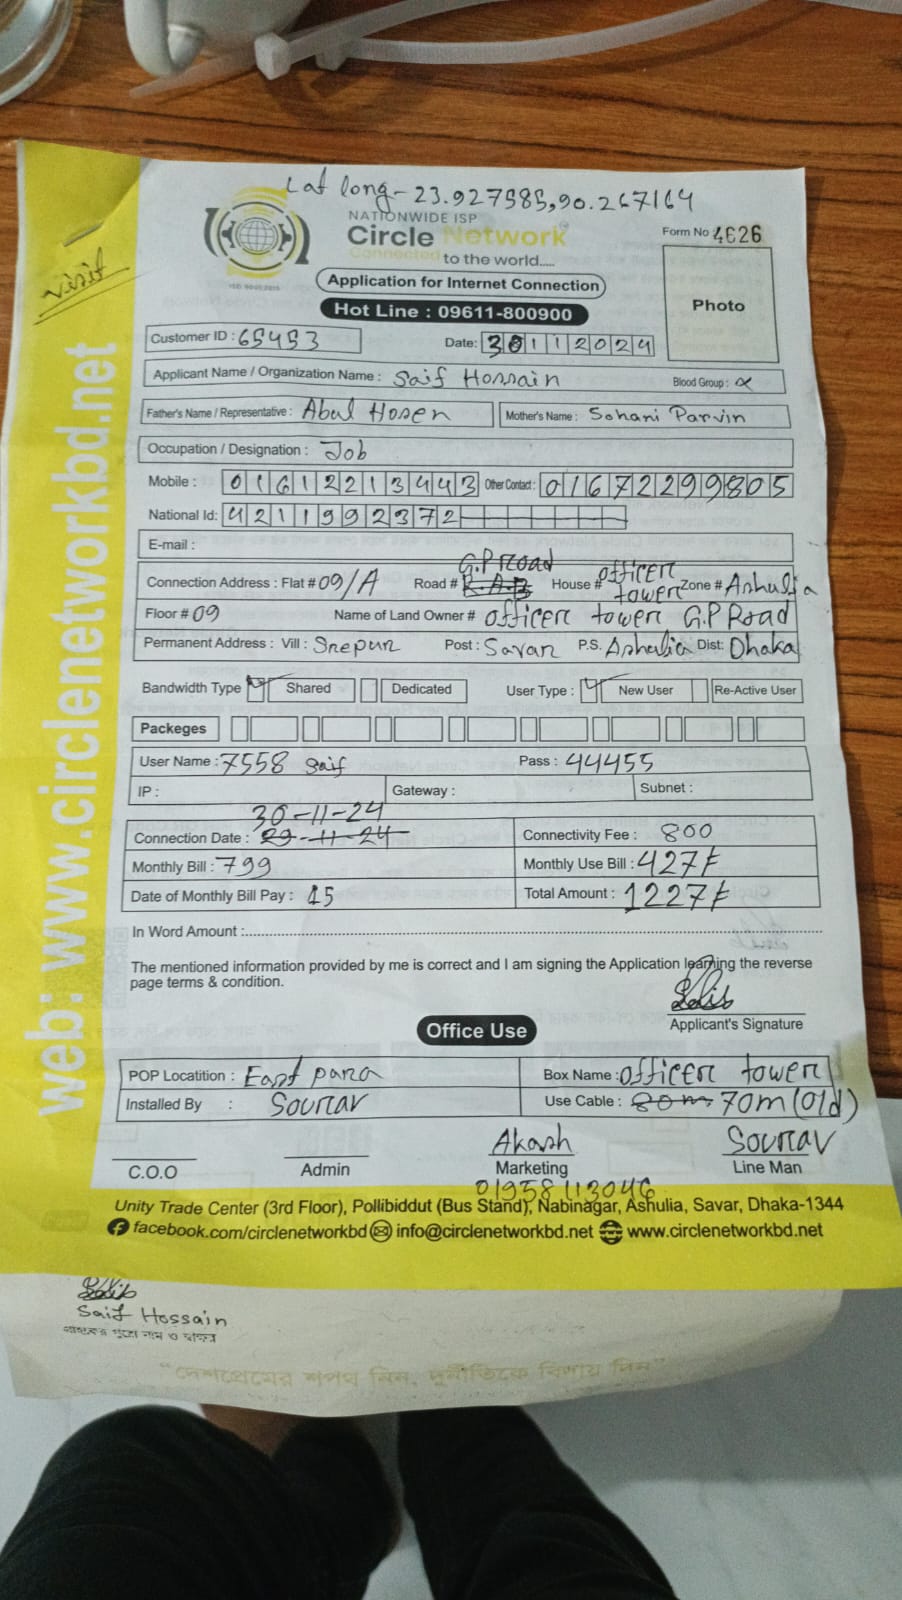 Lat long- 23.927585,90.267164
NATIONWIDE ISP
Circle Network
Connected to the world.....
Form No 4626
Application for Internet Connection
Photo
Hot Line : 09611-800900
visit
Customer ID : 65453
Date: 30112024
Applicant Name / Organization Name : Saif Hossain Blood Group :
Father's Name / Representative : Abul Hosen Mother's Name : Sohani Parvin
Occupation / Designation : Job
Mobile : 01612213443 Other Contact : 01672299805
National Id: 4211992372
E-mail :
G.P Road officer
Connection Address : Flat # 09/A Road # House # tower Zone # Ashulia
Floor # 09 Name of Land Owner # officer tower G.P Road
Permanent Address : Vill : Srepur Post : Savar P.S. Ashulia Dist: Dhaka
Bandwidth Type Shared Dedicated User Type : New User Re-Active User
Packeges
User Name : 7558 saif Pass : 44455
IP : Gateway : Subnet :
30-11-24
Connection Date : 29-11-24 Connectivity Fee : 800
Monthly Bill : 799 Monthly Use Bill : 427/
Date of Monthly Bill Pay : 15 Total Amount : 1227/
In Word Amount :
The mentioned information provided by me is correct and I am signing the Application learning the reverse
page terms & condition.
Applicant's Signature
Office Use
POP Locatition : East para Box Name : officer tower
Installed By : Sourav Use Cable : 80m 70m (old)
Akash Sourav
C.O.O Admin Marketing Line Man
01958113046
Unity Trade Center (3rd Floor), Pollibiddut (Bus Stand), Nabinagar, Ashulia, Savar, Dhaka-1344
facebook.com/circlenetworkbd info@circlenetworkbd.net www.circlenetworkbd.net
web: www.circlenetworkbd.net
Saif Hossain
গ্রাহকের পুরো নাম ও স্বাক্ষর
"দেশপ্রেমের শপথ নিন, দুর্নীতিকে বিদায় দিন"